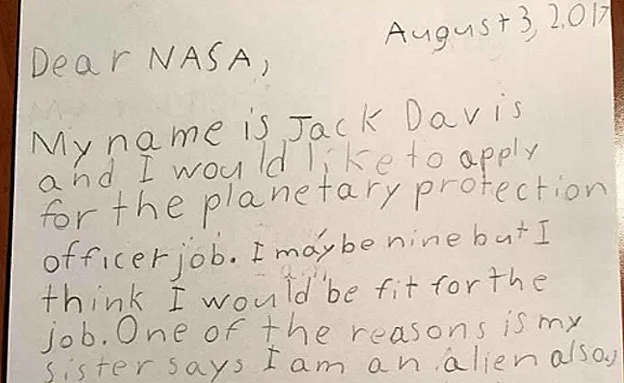 August 3, 2017
Dear NASA,
My name is Jack Davis
and I would like to apply
for the planetary protection
officer job. I may be nine but I
think I would be fit for the
job. One of the reasons is my
sister says I am an alien also